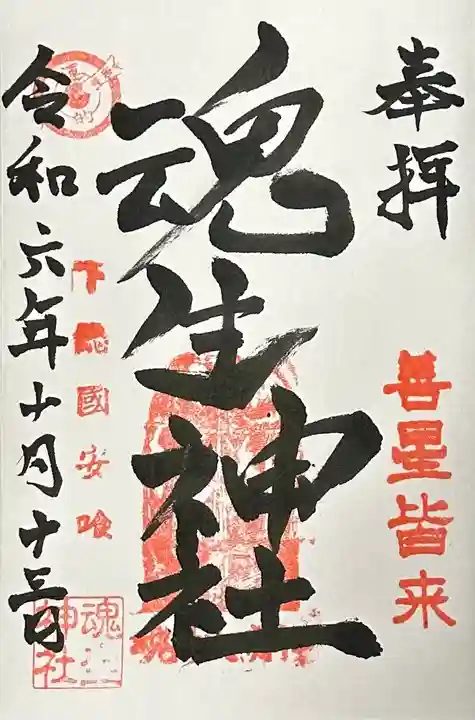 奉拝
善星皆来
魂生神社
下総國安喰
令和六年十月十三日
魂生神社